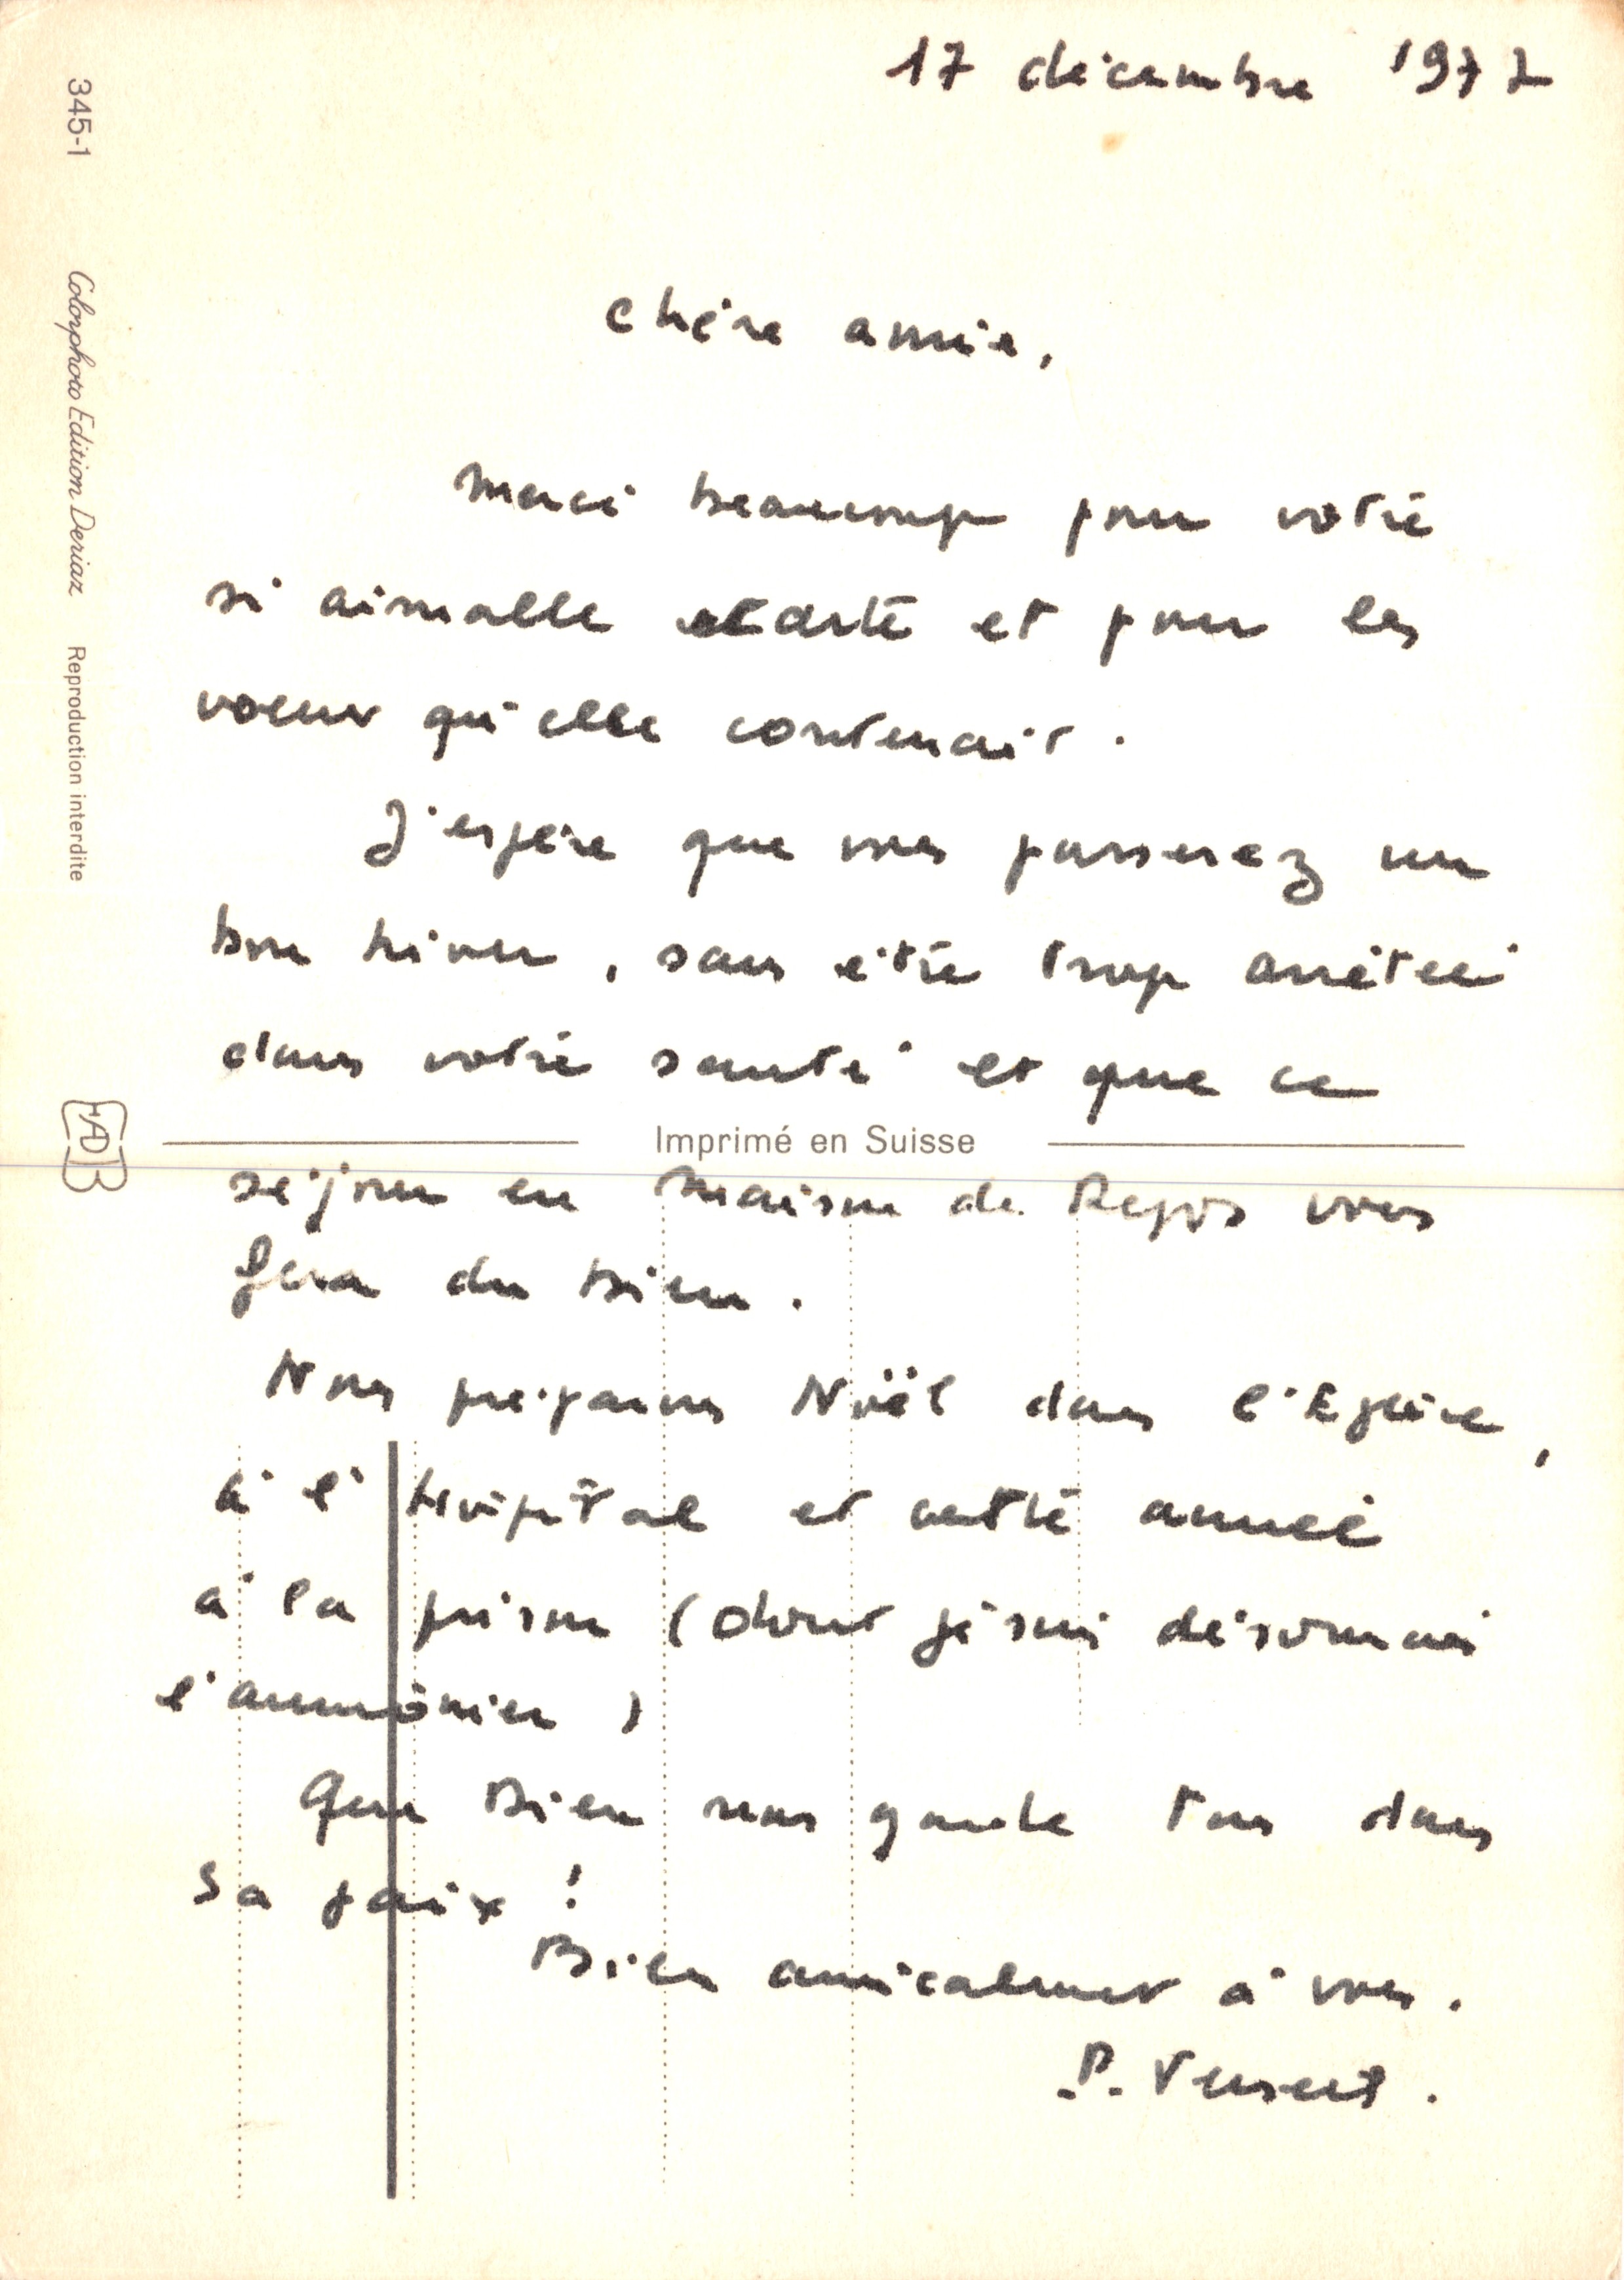 17 décembre 1972
Chère amie,
Merci beaucoup pour votre
si aimable carte et pour les
voeux qu'elle contenait.
J'espère que vous passerez un
bon hiver, sans être trop arrêtée
dans votre santé et que ce
Imprimé en Suisse
séjour en Maison de Repos vous
fera du bien.
Nous préparons Noël dans l'Eglise,
à l'hôpital et cette année
à la prison (dont je suis désormais
l'aumônier)
Que Dieu nous garde tous dans
sa paix !
Bien amicalement à vous.
P.
345-1 Colorphoto Edition Deriaz Reproduction interdite